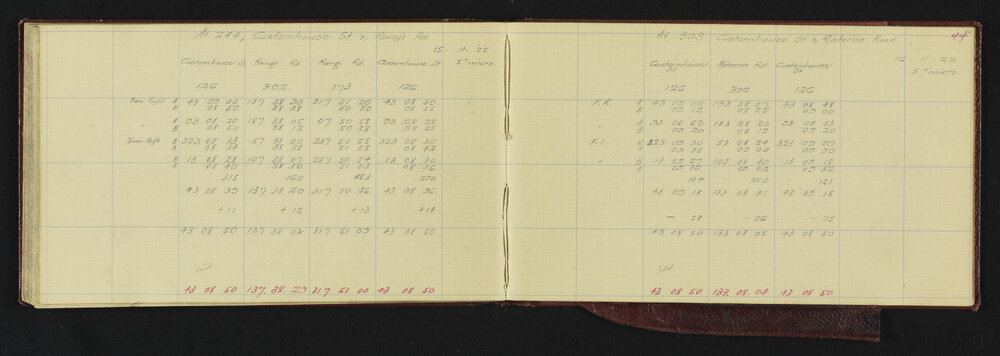 At 244, Customhouse St & Rangi Rd.
15. 11. '22
Customhouse St Rangi Rd Rangi Rd. Customhouse St 5" micro.
126 302 173 126
Face right A 43 09 00 137 38 30 317 51 20 43 08 50
B 08 50 38 38 50 50 08 55
" A 93 08 20 187 38 05 07 50 58 93 08 22
B 08 50 38 12 50 28 08 25
Face left B 323 08 33 57 38 00 237 50 55 323 08 30
A 08 34 38 38 51 05 08 42
B 13 08 28 107 38 07 287 50 54 13 08 30
A 08 40 38 30 51 03 08 36
315 160 453 290
43 08 39 137 38 20 317 50 56 43 08 36
+11 +12 +13 +14
43 08 50 137 38 32 317 51 09 43 08 50
43 08 50 137. 38. 29 317 51 00 43 08 50
44
At 303 Customhouse St & Materoa Road
16 11. 22
Customhouse St Materoa Rd. Customhouse St 5" micro.
126 300 126
F.R. A 43 09 00 133 08 07 43 08 48
B 09 12 08 25 09 00
" A 93 08 50 183 08 20 93 08 53
B 09 20 08 12 09 20
F.L. B 323 09 20 53 08 24 323 09 20
A 09 35 09 00 09 30
" B 13 09 27 103 08 40 13 09 18
A 09 30 09 02 09 52
144 250 121
43 09 18 133 08 31 43 09 15
- 28 - 26 - 25
43 08 50 133 08 05 43 08 50
43 08 50 133. 08. 04 43 08 50